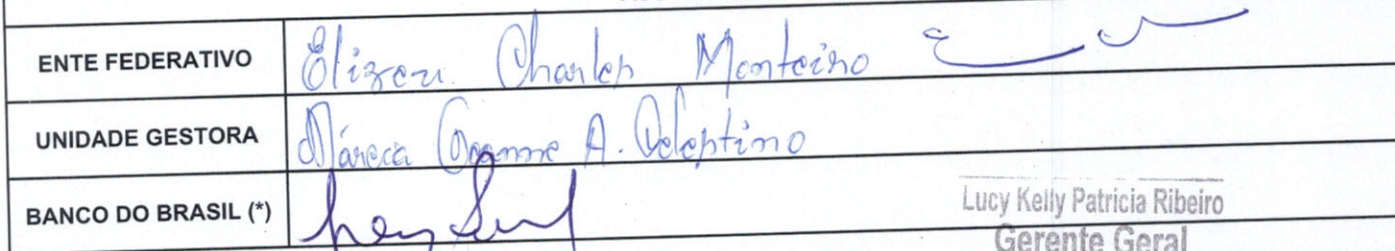 ENTE FEDERATIVO Elizeu Charles Monteiro
UNIDADE GESTORA A. Celestino
BANCO DO BRASIL (*)
Lucy Kelly Patricia Ribeiro
Gerente Geral